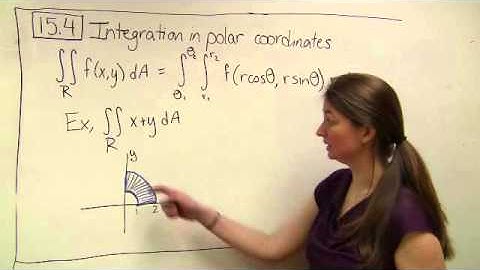 15.4 Integration in polar coordinates
∬_R f(x,y) dA = ∫_{θ₁}^{θ₂} ∫_{r₁}^{r₂} f(rcosθ, rsinθ)
Ex, ∬_R x+y dA
y
1 2